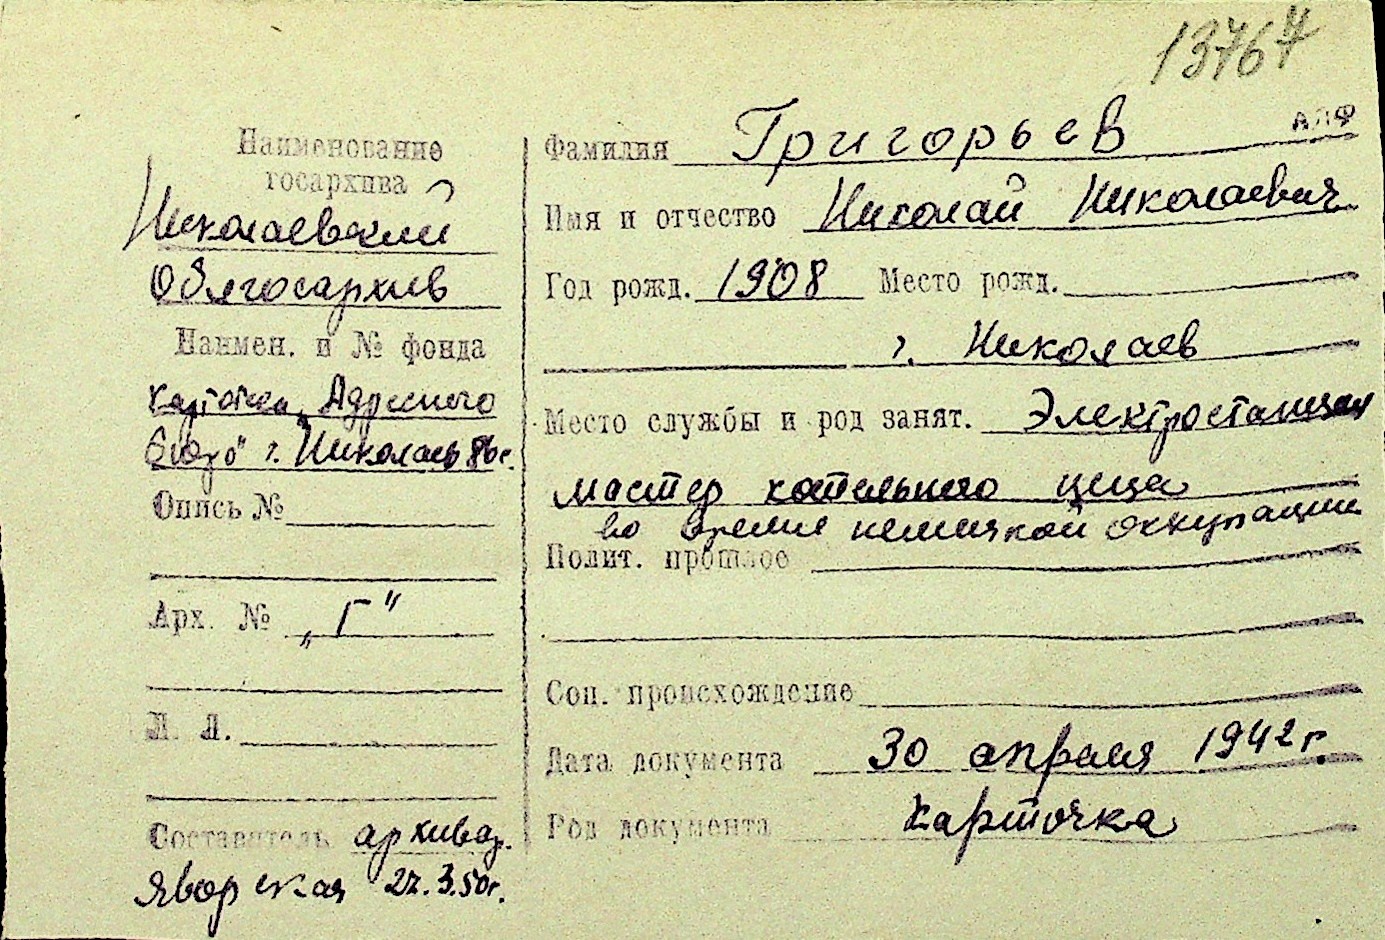 13767
Наименование
госархива
Николаевский
Облгосархив
Наимен. и № фонда
картотека „Адресного
бюро" г. Николаев
Опись №
Арх. № „Г"
Л. Л.
Составитель архивар.
Яворская 27.3.50г.
АЛФ
Фамилия Григорьев
Имя и отчество Николай Николаевич
Год рожд. 1908 Место рожд.
г. Николаев
Место службы и род занят. Электростанция
мастер котельного цеха
во время немецкой оккупации
Полит. прошлое
Соц. происхождение
Дата документа 30 апреля 1942 г.
Род документа карточка